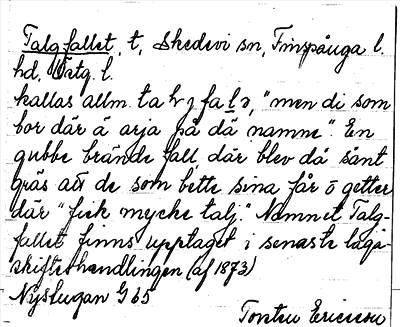 Talgfallet, t, Skedevi sn, Finspånga l.
hd, Östg. l.
kallas allm. "men di som
bor där ä arja på dä namne". En
gubbe brände fall där blev då sånt
gräs att de som bette sina får o getter
där "fick mycke talj." Namnet Talg-
fallet finns upptaget i senaste laga
skifteshandlingen (af 1873)
G 65
Torsten Ericsson